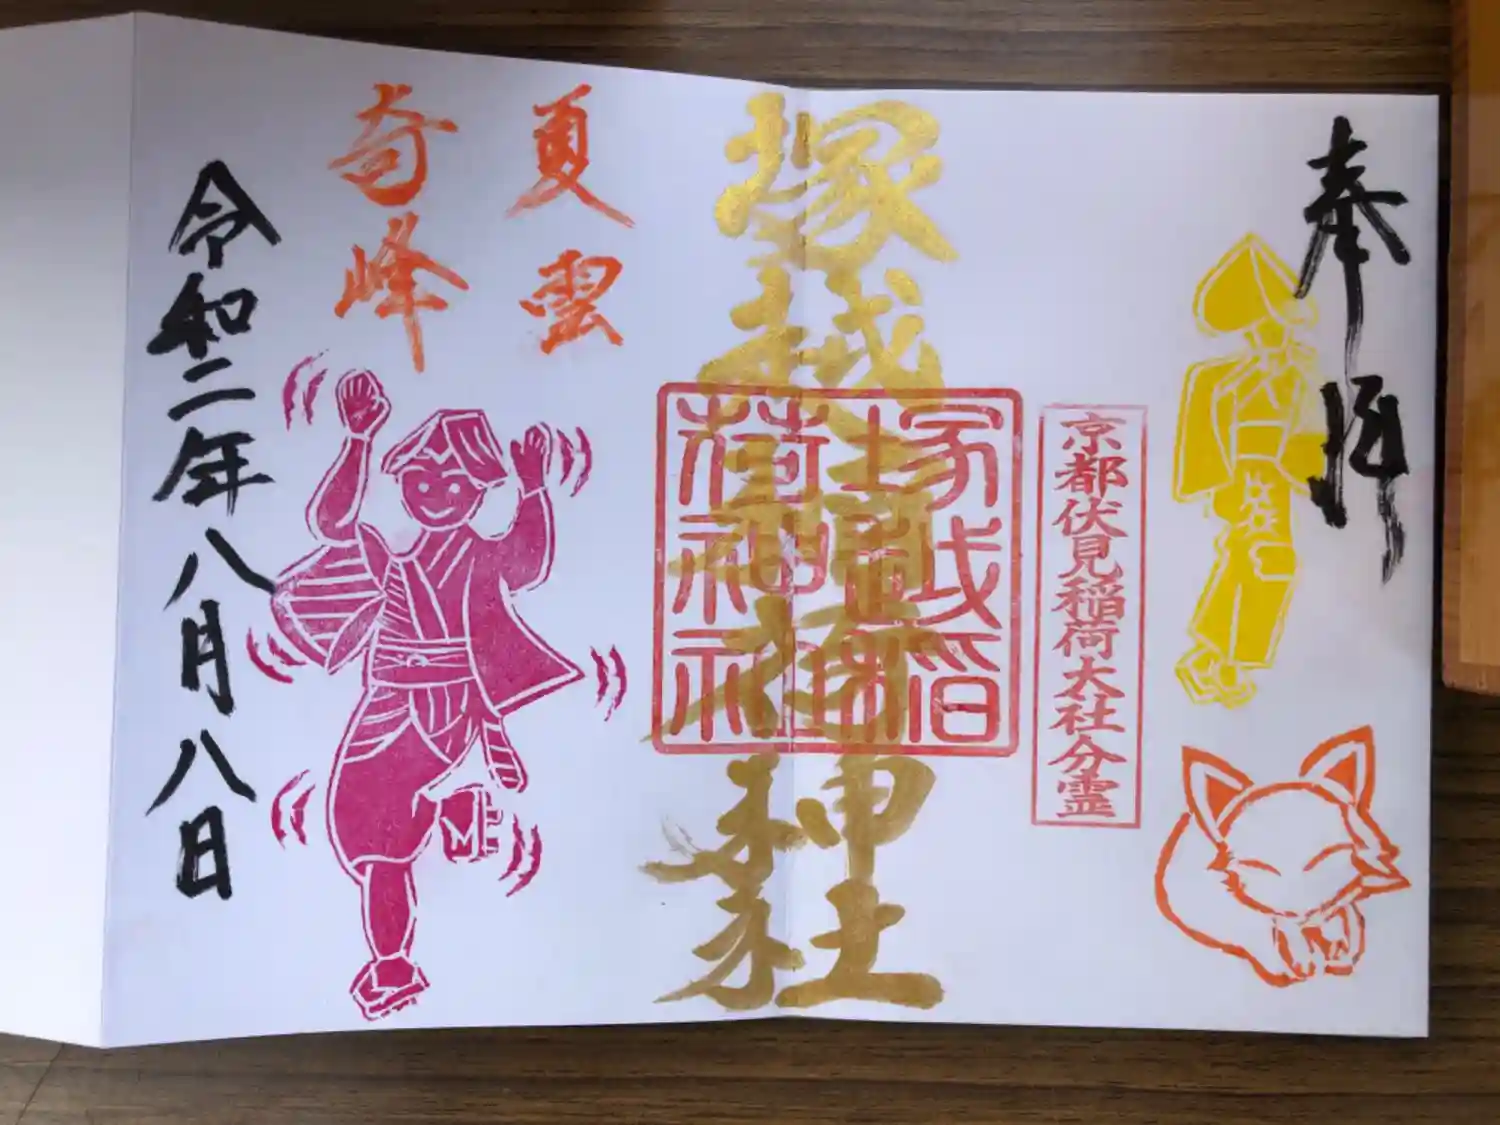 奉拝
京都伏見稲荷大社分霊
塚越稲荷神社
塚越稲荷神社
夏雲
奇峰
令和二年八月八日